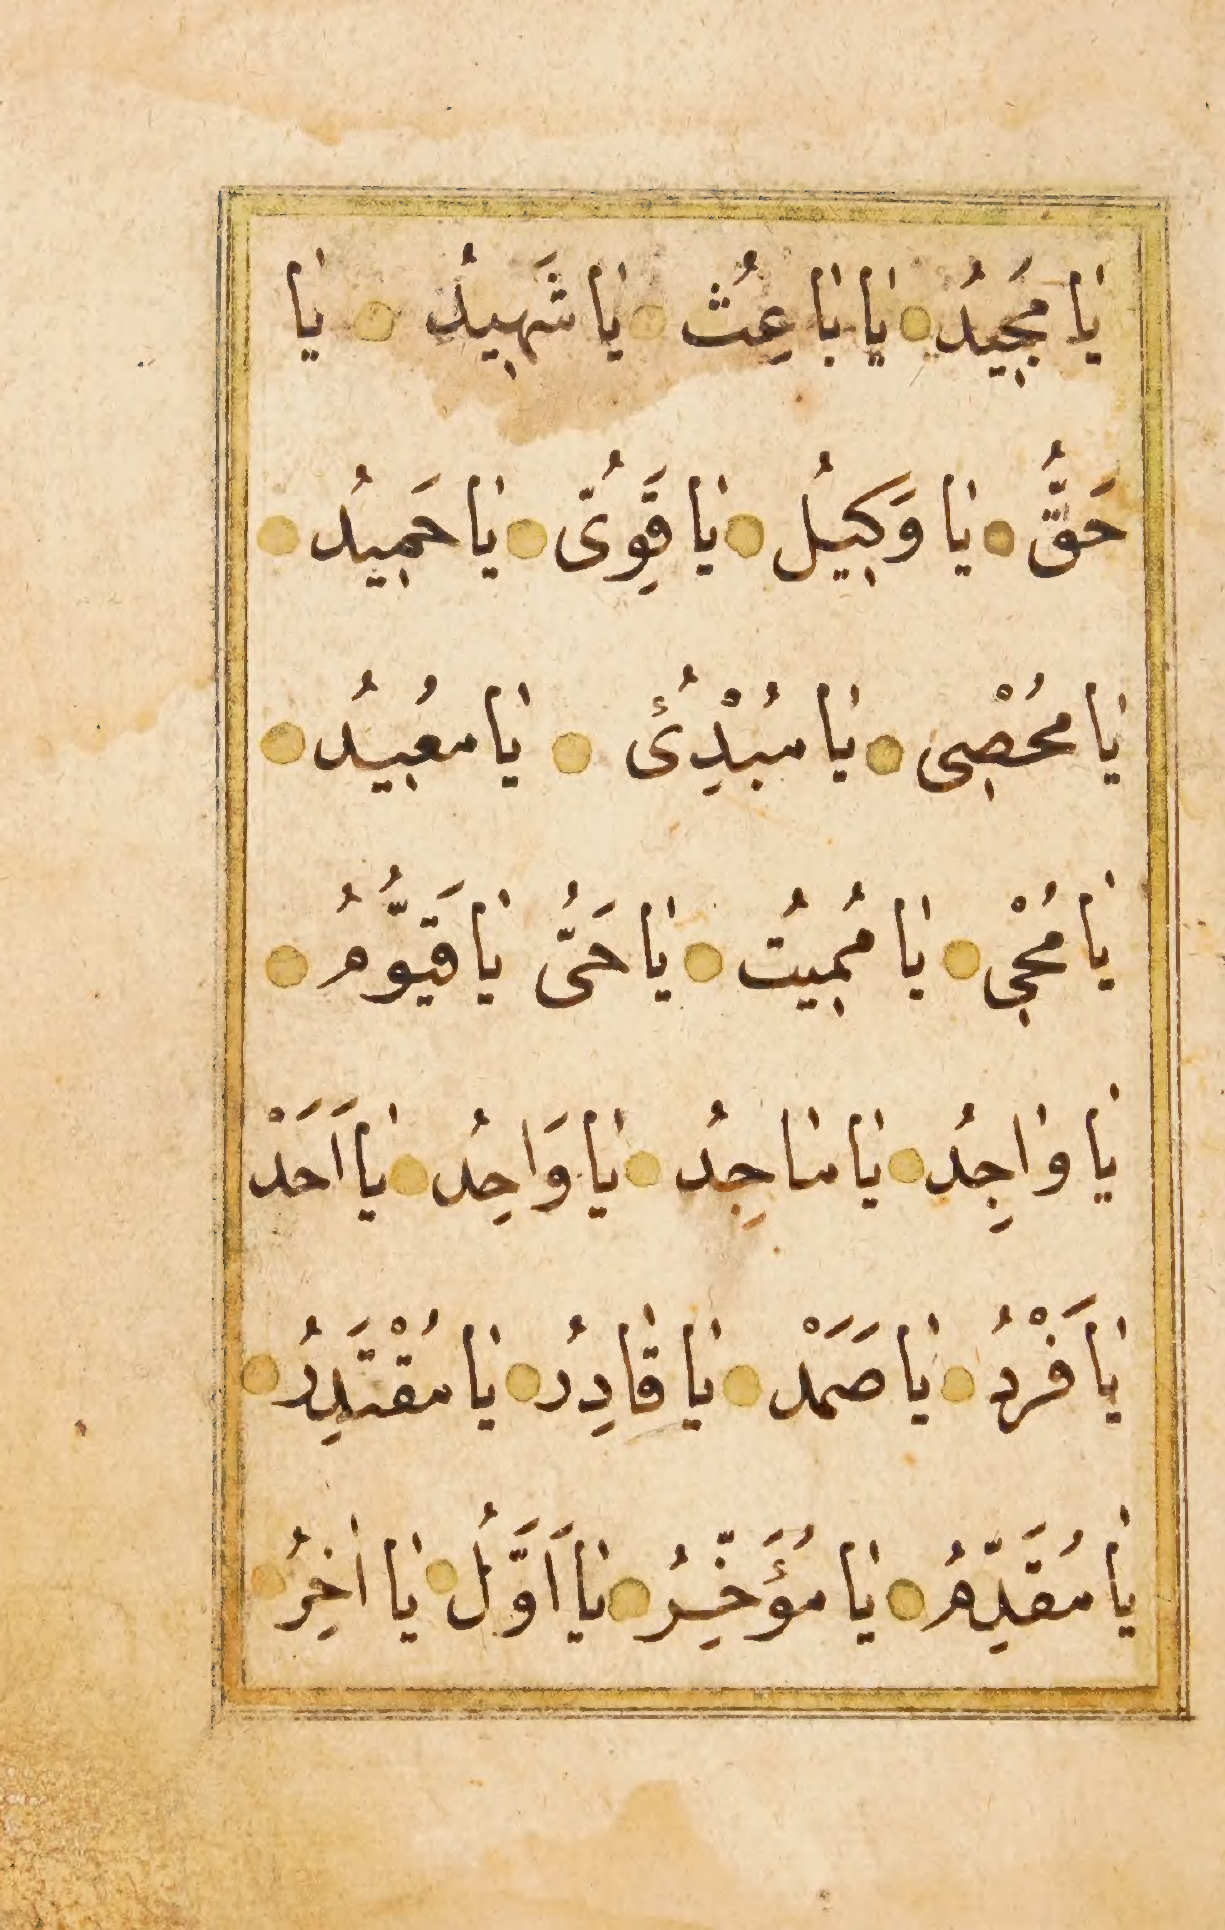 يا مَجيدُ يا باعِثُ يا شَهيدُ يا
حَقُّ يا وَكيلُ يا قَوِىُّ يا حَميدُ
يا مُحْصى يا مُبْدِئُ يا مُعيدُ
يا مُحْيى يا مُميتُ يا حَىُّ يا قَيُّومُ
يا واجِدُ يا ماجِدُ يا وَاحِدُ يا اَحَدْ
يا فَرْدُ يا صَمَدْ يا قادِرُ يا مُقْتَدِرُ
يا مُقَدِّمُ يا مُؤَخِّرُ يا اَوَّلُ يا اٰخِرُ